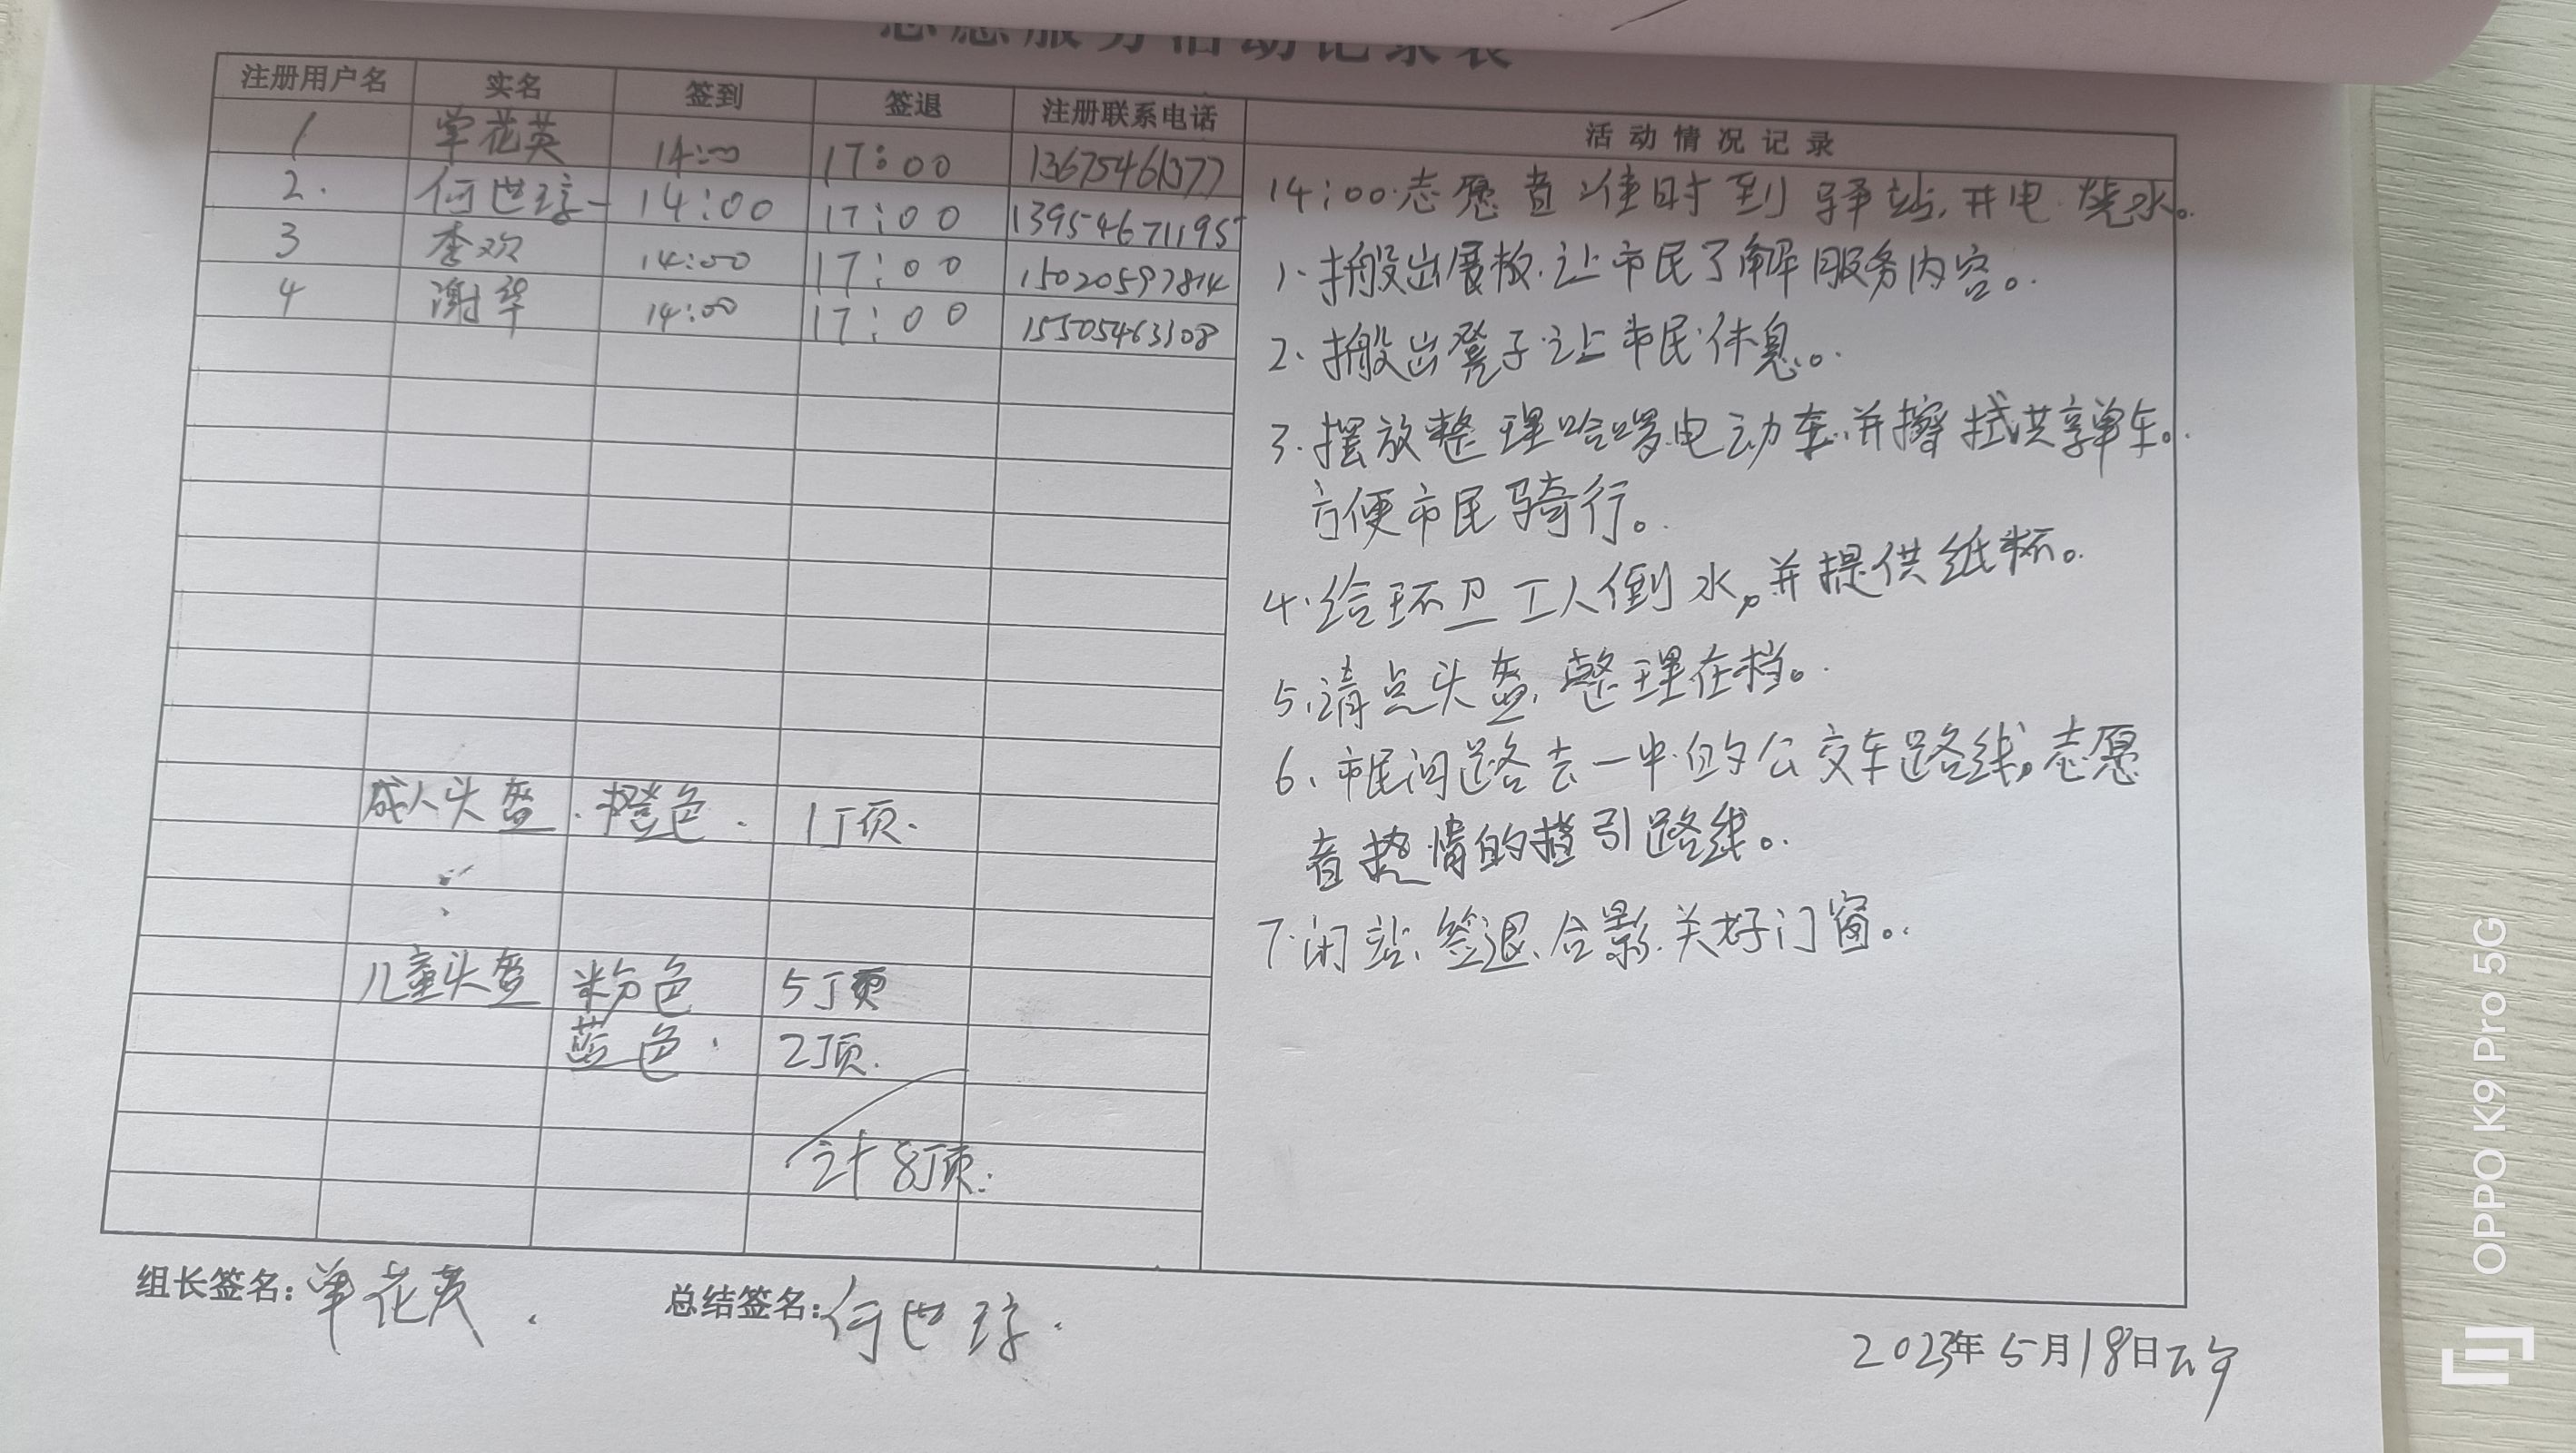 志愿服务活动记录表
注册用户名 实名 签到 签退 注册联系电话 活动情况记录
1 单花英 14:00 17:00 13675461377
2. 何世琼 14:00 17:00 13954671195
3 李欢 14:00 17:00 15020597814
4 谢华 14:00 17:00 15505463108
成人头盔. 橙色. 1顶.
儿童头盔 粉色 5顶
蓝色. 2顶.
计8顶.
14:00.志愿者准时到驿站.开电.烧水。
1.搬出展板.让市民了解服务内容。
2.搬出凳子.让市民休息。
3.摆放整理哈啰电动车.并擦拭共享单车。
方便市民骑行。
4.给环卫工人倒水,并提供纸杯。
5.清点头盔,整理在档。
6、市民问路去一中的公交车路线,志愿
者热情的指引路线。
7.闭站、签退、合影.关好门窗。
组长签名:单花英. 总结签名:何世琼.
2023年5月18日下午
OPPO K9 Pro 5G